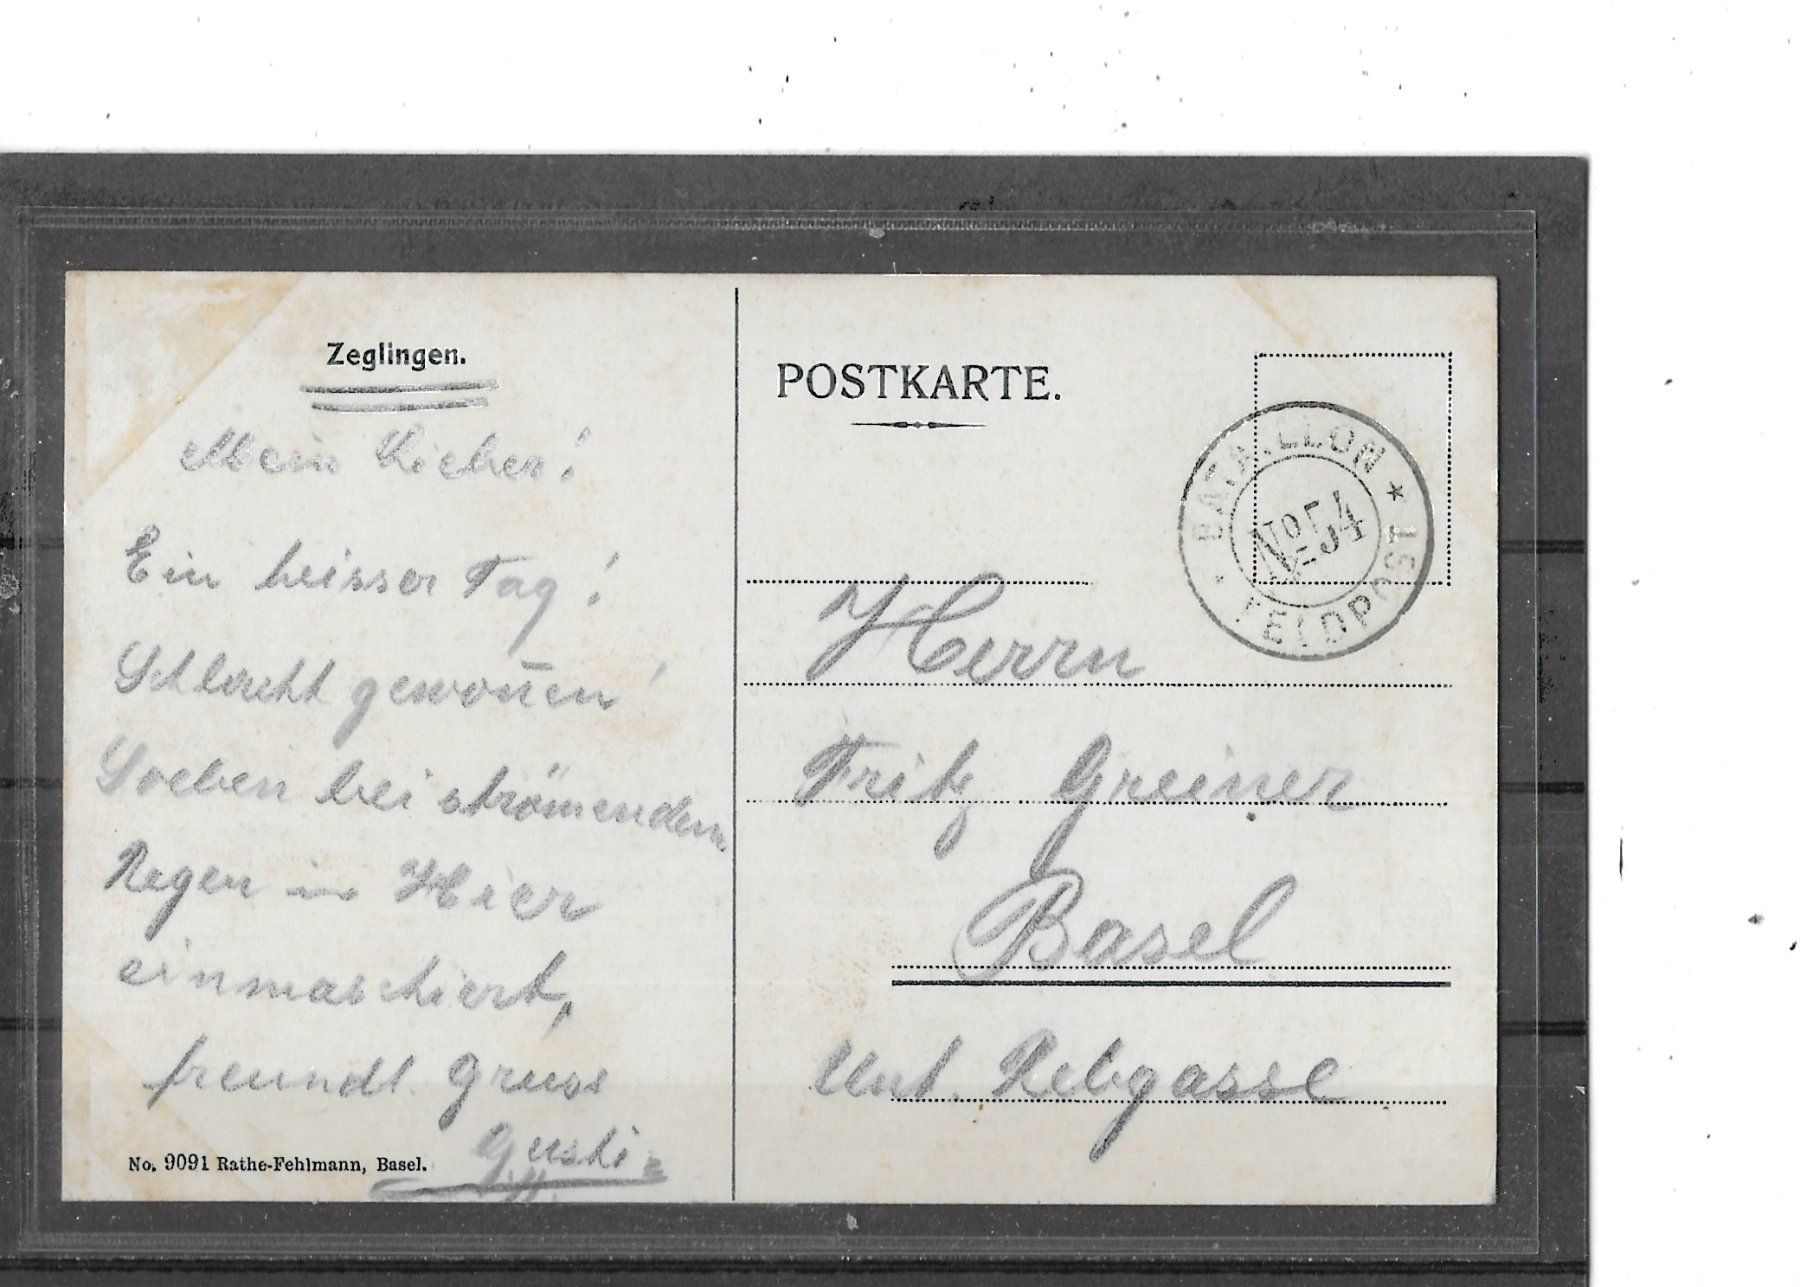 Zeglingen.
Mein Lieber!
Ein heisser Tag!
Schlacht gewon̄en!
Soeben bei strömendem
Regen in Hier
einmaschiert,
freundl. Gruss
Gusti
No. 9091 Rathe-Fehlmann, Basel.
POSTKARTE.
BATAILLON
No 54
* FELDPOST *
Herrn
Fritz Greiner
Basel
Unt. Rebgasse